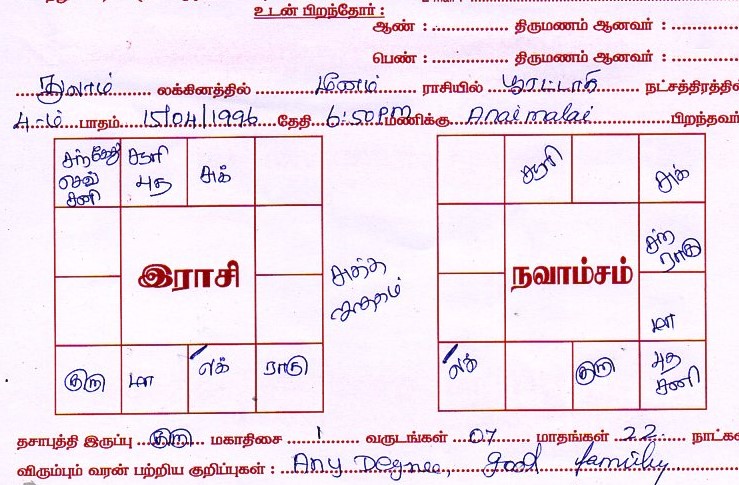 உடன் பிறந்தோர் :
ஆண் : .............. திருமணம் ஆனவர் :
பெண் : .............. திருமணம் ஆனவர் :
துலாம் லக்கினத்தில் மீனம் ராசியில் பூரட்டாதி நட்சத்திரத்தில்
4-ம் பாதம் 15/04/1996 தேதி 6:50PM மணிக்கு Anaimalai பிறந்தவர்
சந் கேது சூரி சுக் சூரி சுக்
செவ் புத
சனி
சந்
ராகு
இராசி நவாம்சம்
மா
குரு மா லக் ராகு லக் குரு புத
சனி
தசாபுத்தி இருப்பு குரு மகாதிசை 1 வருடங்கள் 07 மாதங்கள் 22 நாட்கள்
விரும்பும் வரன் பற்றிய குறிப்புகள் : Any Degree, good family